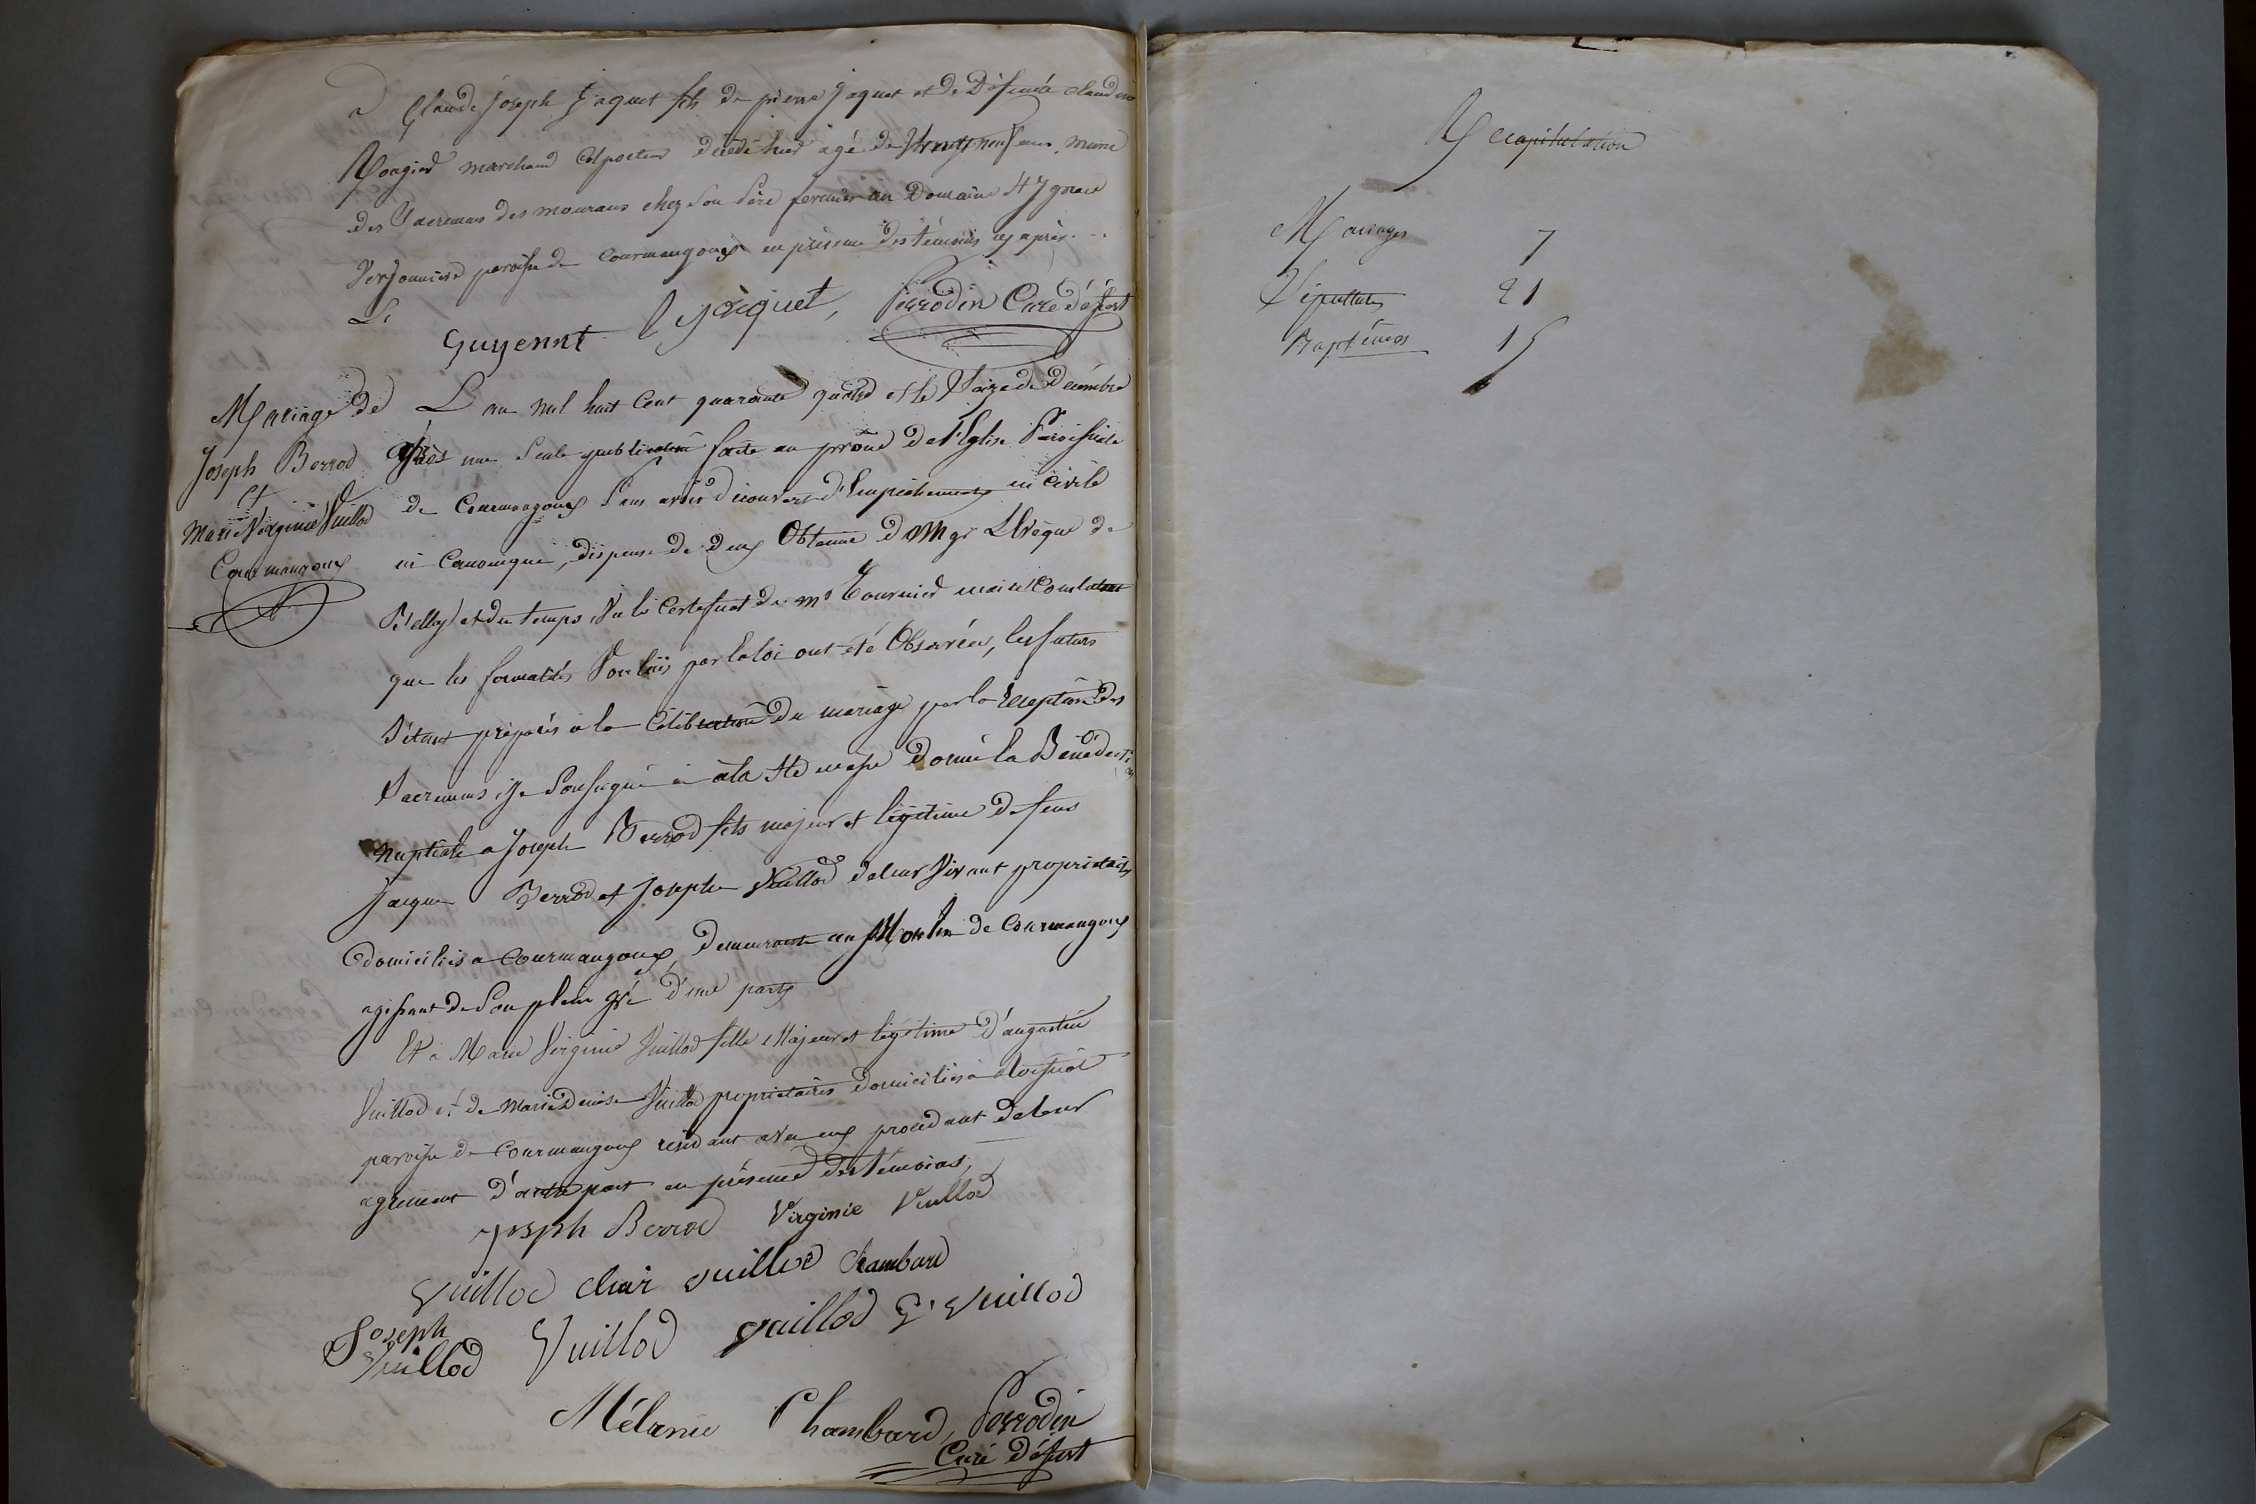 Claude Joseph Jaquet fils de pierre Jaquet et de Défunte claudine
Rougier marchand Colporteur décédé hier agé de ans, muni
des Sacremens des mourans chez Son Père fermier au Domaine
paroisse de Courmangoux en présence des témoins cy après
Guyennt Jacquet, Perrodin Curé déssert
Mariage de
Joseph Berrod
et
Marie Virginie Vuillod
Courmangoux
L'an mil huit Cent quarante quatre et le Seize de Décembre
Après une Seule publication faite au prône de l'Eglise Paroissiale
de Courmangoux Sans avoir découvert d'Empêchement ni Civile
ni Canonique, dispense de deux Obtenue de Mgr L'Evêque de
Belley et du temps, Vu le Certificat de Mr Tournier maire Constatant
que les formalités Voulues par la loi ont été Observées, les futurs
S'étant préparés à la Célébration du mariage par la Réception des
Sacremens, je Soussigné ai à la Ste messe Donné la Bénédiction
nuptiale a Joseph Berrod fils majeur et légitime de feus
Jacques Berrod et Josephe Vuillod de leur Vivant propriétaires
domiciliés a Courmangoux, Demeurant au Moulin de Courmangoux
agissant de Son plein gré d'une part
Et à Marie Virginie Vuillod fille Majeure et légitime d'augustin
Vuillod et de Marie Denise Vuillod propriétaires domiciliés à
paroisse de Courmangoux résidant avec eux procédant de leur
agrément d'autre part en présence des témoins,
Joseph Berrod Virginie Vuillod
Vuillod Clair vuillod Chambard
Joseph
Vuillod Vuillod vuillod G. Vuillod
Mélanie Chambard, Perrodin
Curé déssert
Récapitulation
Mariages 7
Sépultures 21
Baptêmes 15